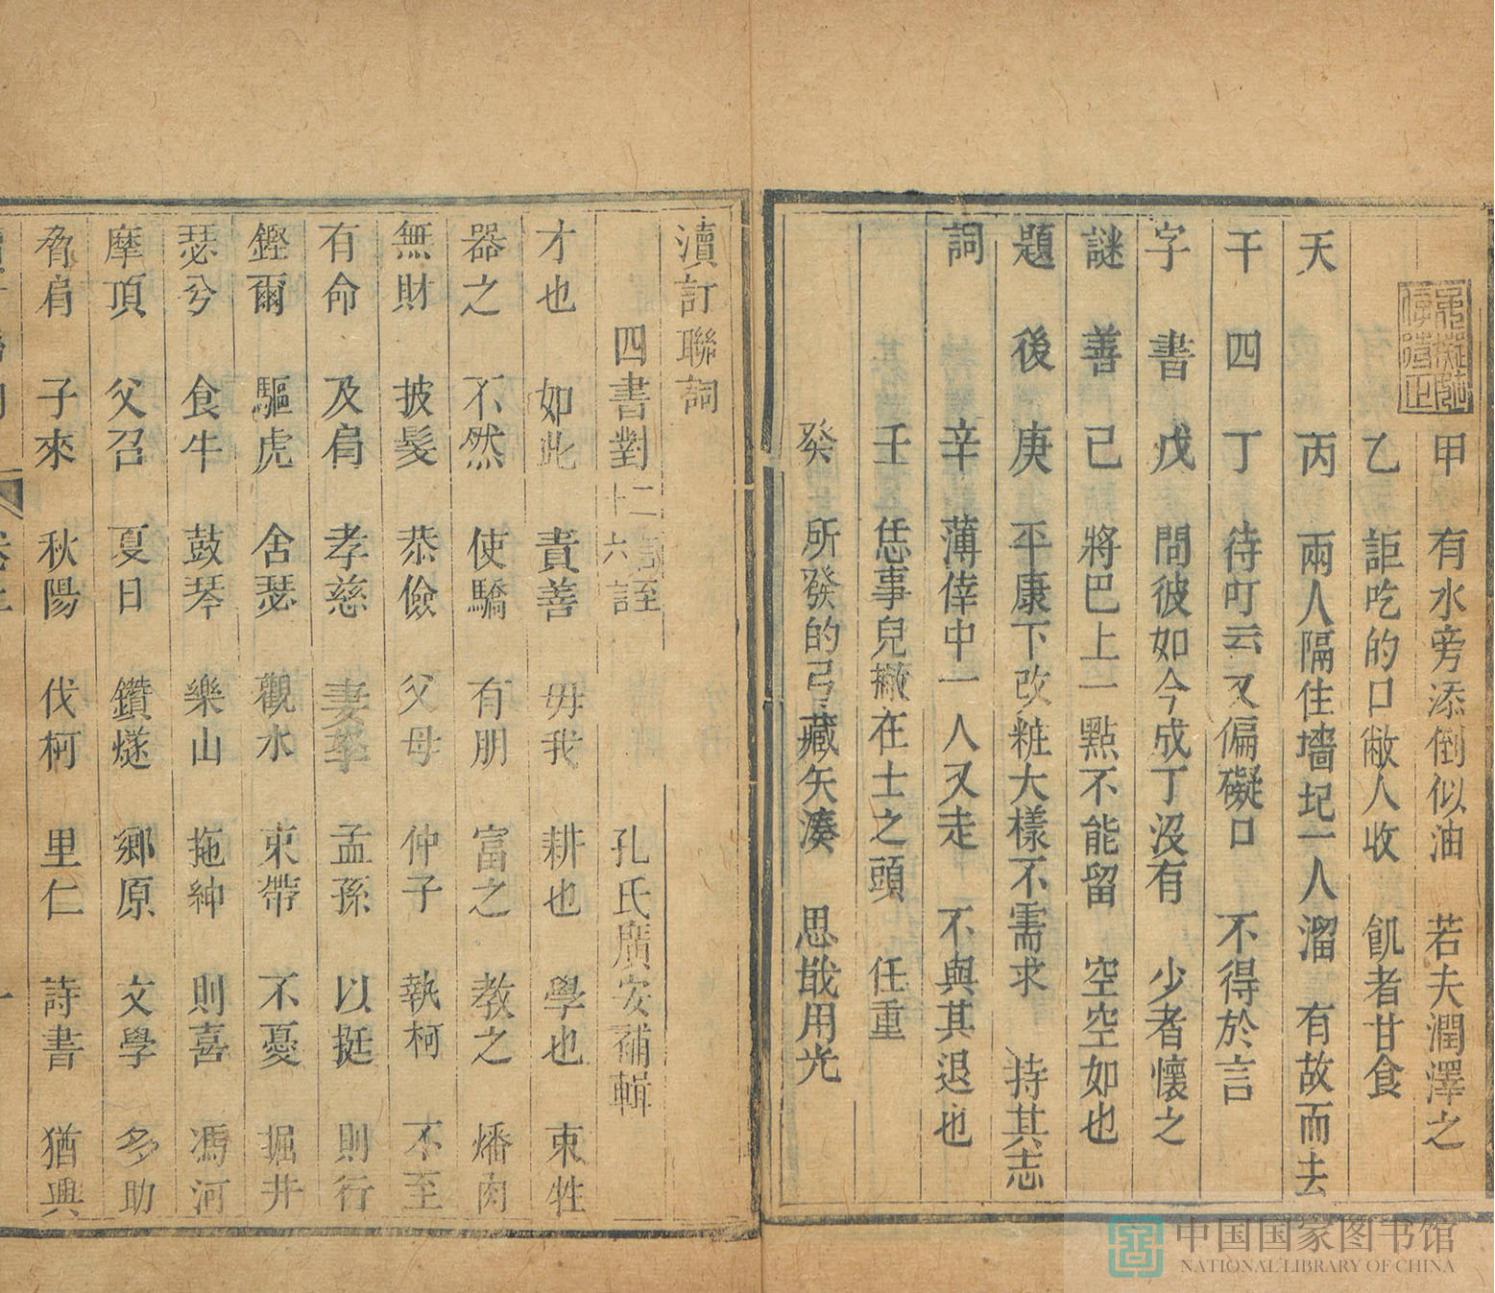 甲 有水旁添倒似油 若夫潤澤之
乙 詎吃的口敝人收 飢者甘食
天 丙 兩人隔住墻圯一人溜 有故而去
干 四 丁 待叮云又偏礙口 不得於言
字 書 戊 問彼如今成丁沒有 少者懷之
謎 善 己 將巴上一點不能留 空空如也
題 後 庚 平康下改粧大樣不需求 持其志
詞 辛 薄倖中一人又走 不與其退也
壬 恁事兒撇在士之頭 任重
癸 所發的弓藏矢湊 思戢用光
瀆訂聯詞
四書對 孔氏廣安補輯
才也 如此 責善 毋我 耕也 學也 東牲
器之 不然 使驕 有朋 富之 教之 燔肉
無財 披髮 恭儉 父母 仲子 執柯 不至
有命 及肩 孝慈 妻孥 孟孫 以挺 則行
鏗爾 驅虎 舍瑟 觀水 束帶 不憂 掘井
瑟兮 食牛 鼓琴 樂山 拖紳 則喜 馮河
摩頂 父召 夏日 鑽燧 鄉原 文學 多助
脅肩 子來 秋陽 伐柯 里仁 詩書 猶興
中国国家图书馆
NATIONAL LIBRARY OF CHINA